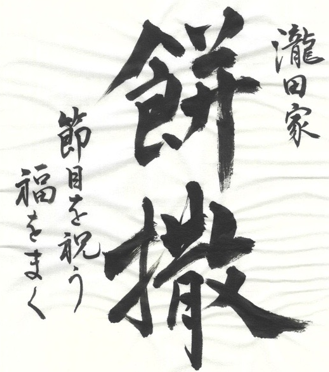 瀧田家
餅撒
節目を祝う
福をまく